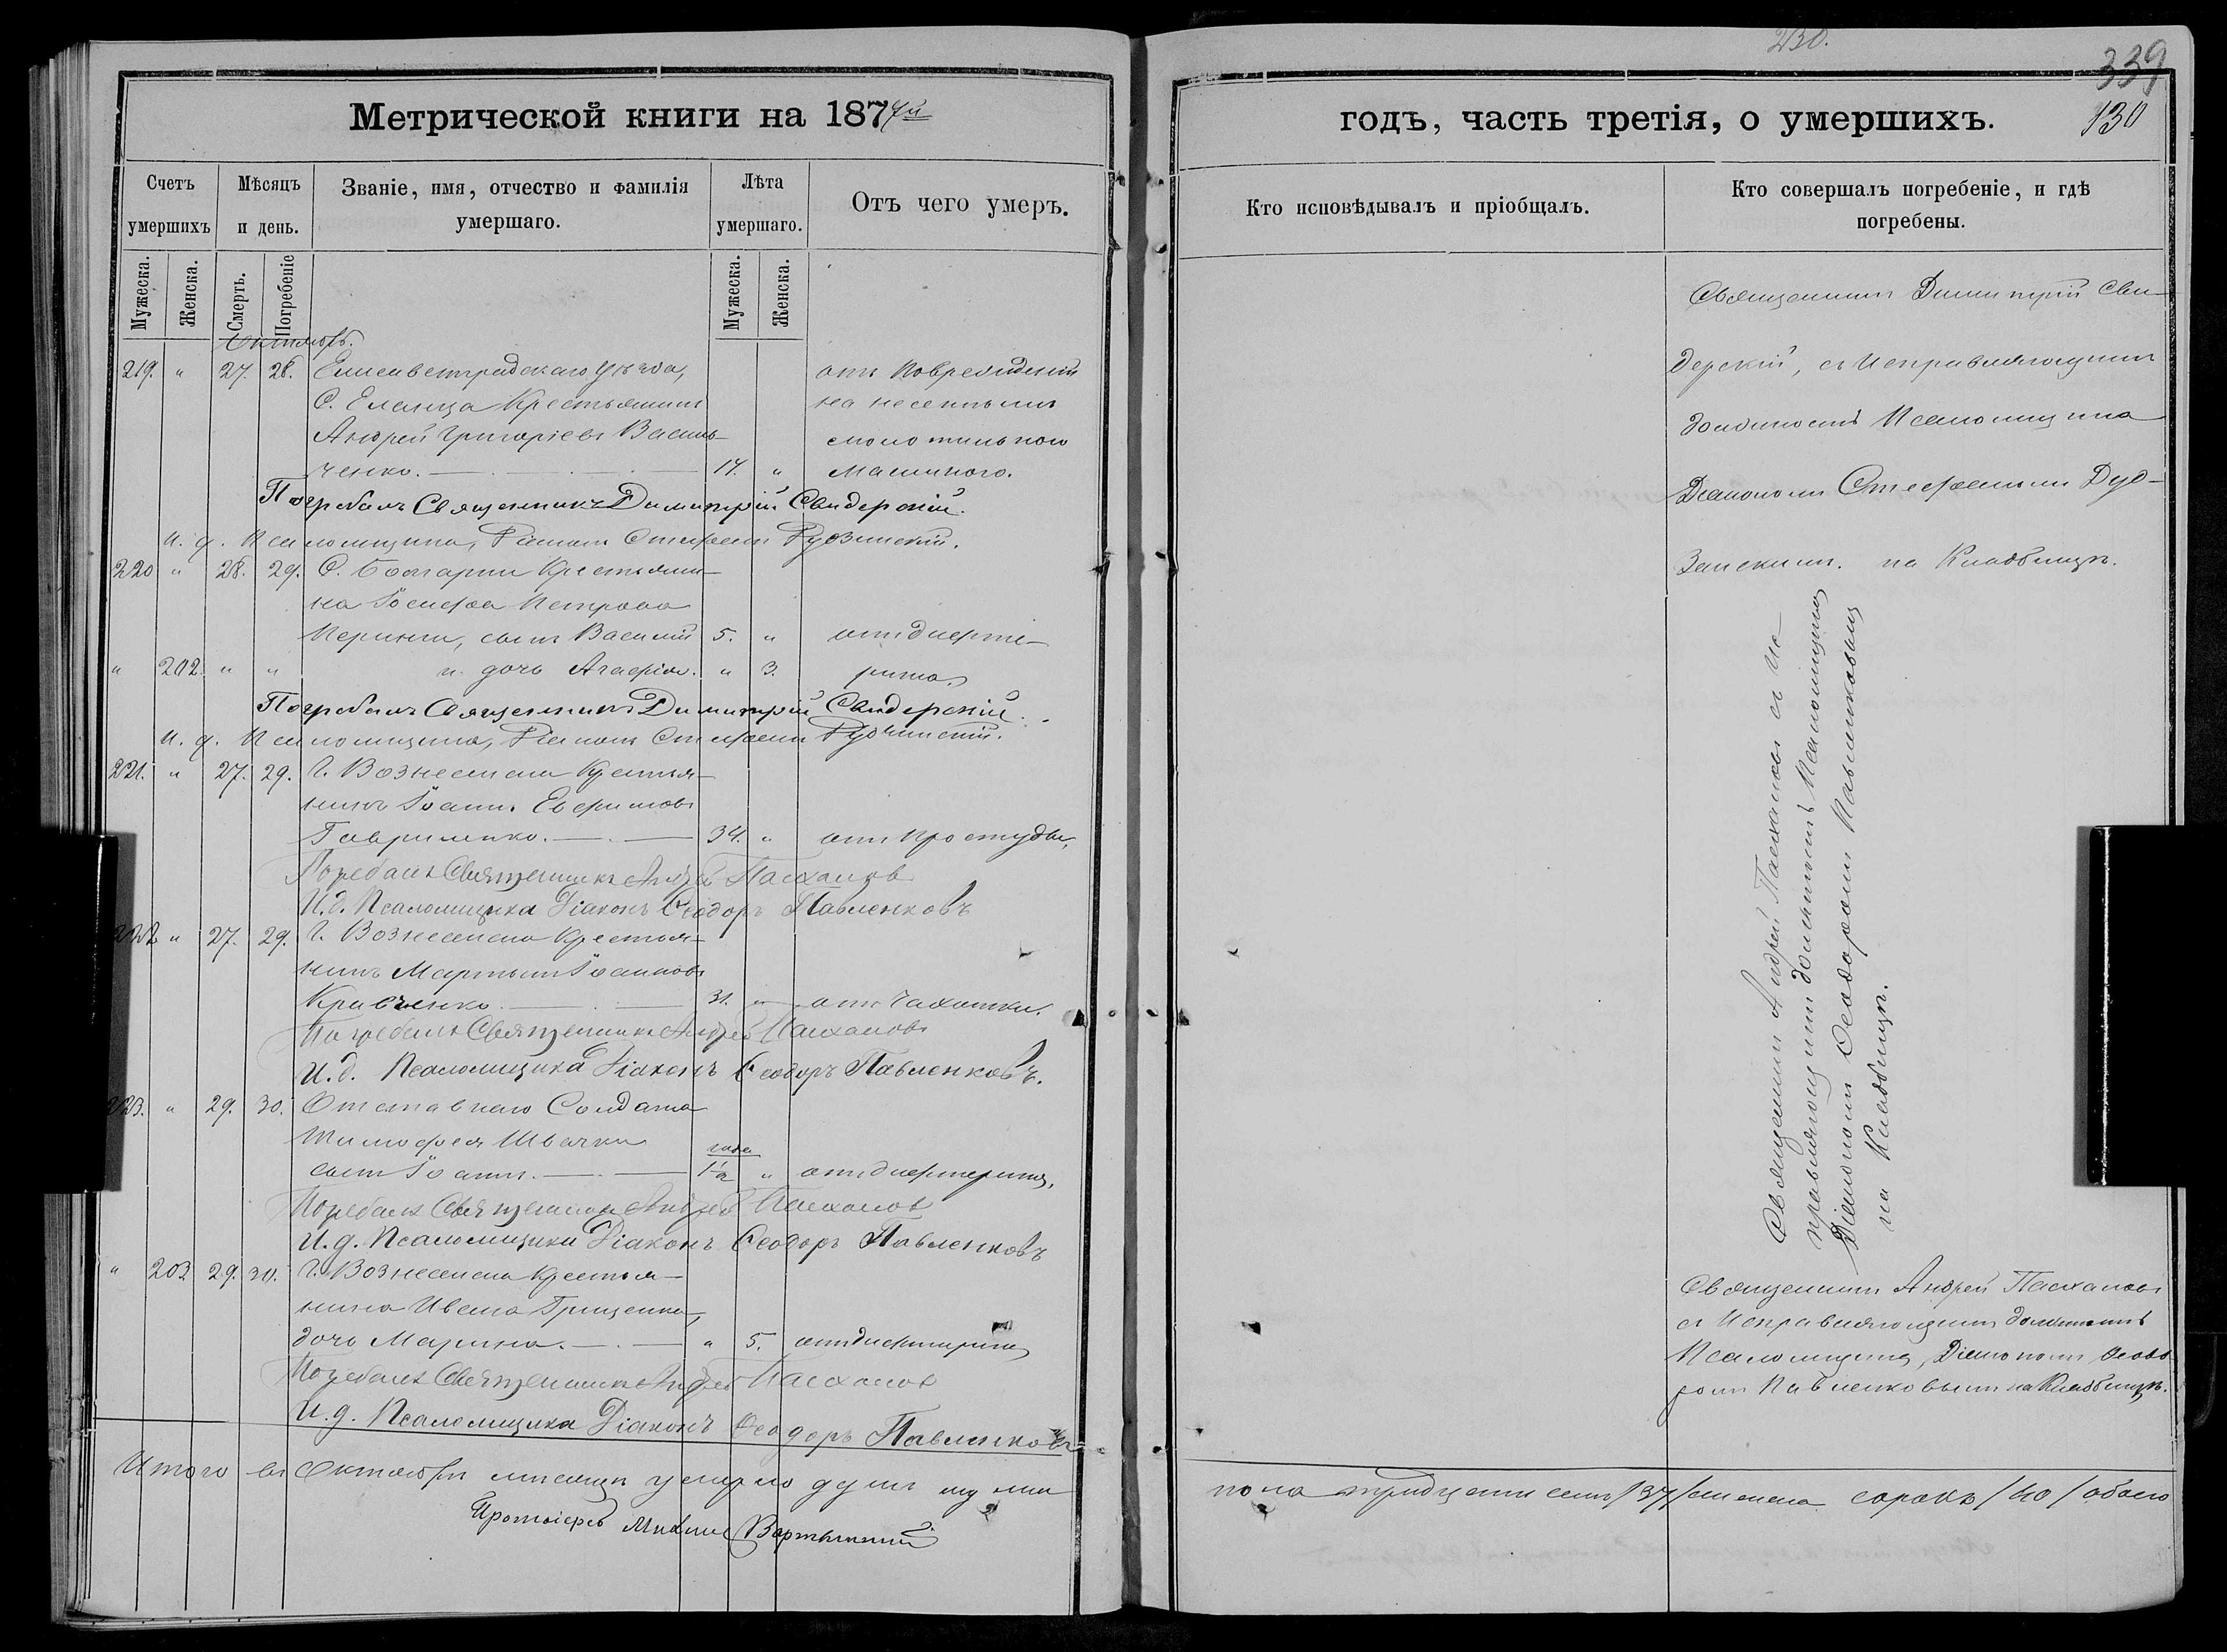 230.
339
130
Метрической книги на 1877й
годъ, часть третія, о умершихъ.
Счетъ умершихъ
Мѣсяцъ и день.
Званіе, имя, отчество и фамилія умершаго.
Лѣта умершаго.
Отъ чего умеръ.
Кто исповѣдывалъ и пріобщалъ.
Кто совершалъ погребеніе, и гдѣ погребены.
Мужеска.
Женска.
Смерть.
Погребеніе
Мужеска.
Женска.
Октябрь.
219. " 27. 28. Елисаветградскаго уѣзда, отъ повреждений
С. Еланца Крестьянинъ нанесенныхъ
Андрей Григоріевъ Василь- молотильною
ченко. 17. " машиною.
Погребалъ Священникъ Димитрій Свидерскій.
и. д. Псаломщика, Діаконъ Стефанъ Рудзинскій.
220 " 28. 29. С. Болгарки Крестьяни-
на Іосифа Петрова
сынъ Василій 5. " отъ дифте-
" 202. " " и дочь Агафія. " 3. рита.
Погребалъ Священникъ Димитрій Свидерскій.
и. д. Псаломщика, Діаконъ Стефанъ
221. " 27. 29. Г. Вознесенска Крестья-
нинъ Іоаннъ Евфимовъ
Гавриленко. 34. " отъ простуды.
Погребалъ Священникъ Андрей Пасхаловъ
И. д. Псаломщика Діаконъ Ѳеодоръ Павленковъ
222 " 27. 29. Г. Вознесенска Крестья-
нинъ Мартынъ Іоанновъ
Кравченко 31. " отъ чахотки.
Погребалъ Священникъ Андрей Пасхаловъ
И. д. Псаломщика Діаконъ Ѳеодоръ Павленковъ.
223. " 29. 30. Отставнаго Солдата
Тимофея Швачки
сынъ Іоаннъ. года 1½ " отъ дифтерита.
Погребалъ Священникъ Андрей Пасхаловъ
И. д. Псаломщика Діаконъ Ѳеодоръ Павленковъ
" 203 29. 30. Г. Вознесенска Крестья-
нина Ивана Грищенка,
дочь Марина. " 5. отъ дифтерита
Погребалъ Священникъ Андрей Пасхаловъ
И. д. Псаломщика Діаконъ Ѳеодоръ Павленковъ
Итого въ Октябрѣ мѣсяцѣ умерло душъ муж.
Протоіерей Михаилъ
Священникъ Димитрій Сви-
дерскій, съ исправляющимъ
должность Псаломщика
Діакономъ Стефаномъ Руд-
зинскимъ. на Кладбищѣ.
Священникъ Андрей Пасхаловъ съ ис-
правляющимъ должность Псаломщика
Діакономъ Ѳеодоромъ Павленковымъ
на Кладбищѣ.
Священникъ Андрей Пасхаловъ
съ исправляющимъ должность
Псаломщика, Діакономъ Ѳеодо-
ромъ Павленковымъ на Кладбищѣ.
пола тридцать семь /37/ женска сорокъ /40/ обоего